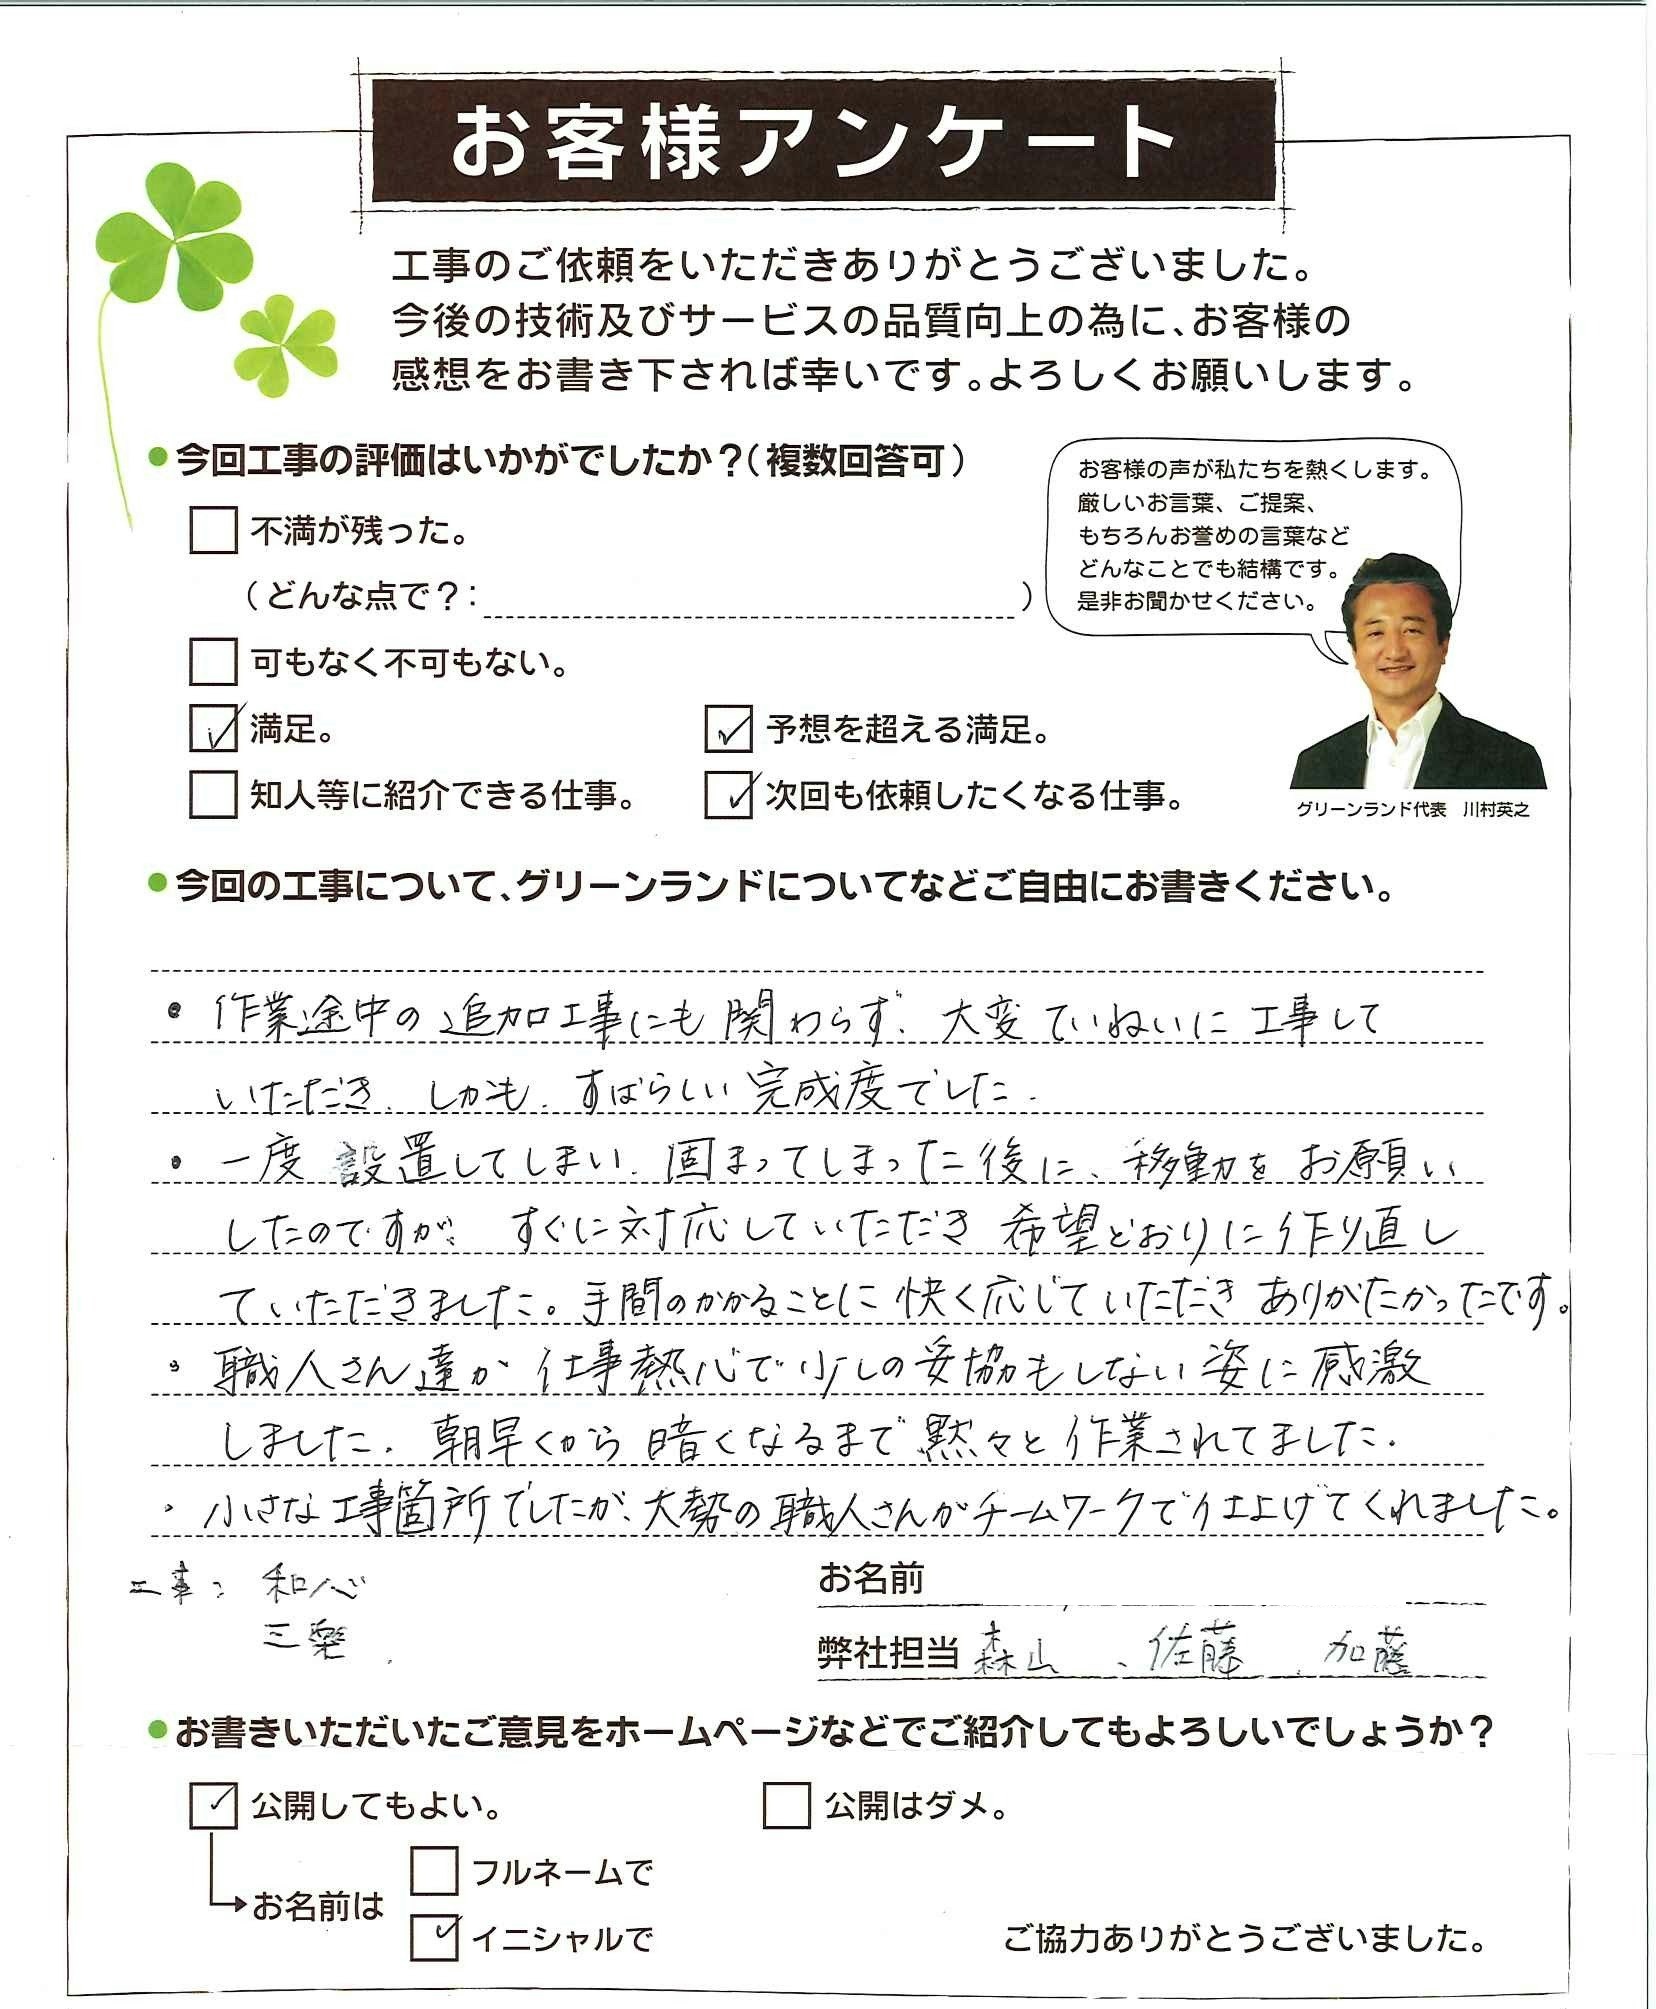 お客様アンケート
工事のご依頼をいただきありがとうございました。
今後の技術及びサービスの品質向上の為に、お客様の
感想をお書き下されば幸いです。よろしくお願いします。
●今回工事の評価はいかがでしたか？（複数回答可）
お客様の声が私たちを熱くします。
厳しいお言葉、ご提案、
もちろんお誉めの言葉など
どんなことでも結構です。
是非お聞かせください。
不満が残った。
（どんな点で？：　）
可もなく不可もない。
満足。
予想を超える満足。
知人等に紹介できる仕事。
次回も依頼したくなる仕事。
グリーンランド代表　川村英之
●今回の工事について、グリーンランドについてなどご自由にお書きください。
・作業途中の追加工事にも関わらず、大変ていねいに工事して
いただき、しかも、すばらしい完成度でした。
・一度設置してしまい、固まってしまった後に、移動をお願い
したのですが、すぐに対応していただき希望どおりに作り直し
ていただきました。手間のかかることに快く応じていただきありがたかったです。
・職人さん達が仕事熱心で少しの妥協もしない姿に感激
しました。朝早くから暗くなるまで黙々と作業されてました。
・小さな工事箇所でしたが、大勢の職人さんがチームワークで仕上げてくれました。
工事：和心
三楽
お名前
弊社担当 森山、佐藤、加藤
●お書きいただいたご意見をホームページなどでご紹介してもよろしいでしょうか？
公開してもよい。
公開はダメ。
お名前は
フルネームで
イニシャルで
ご協力ありがとうございました。